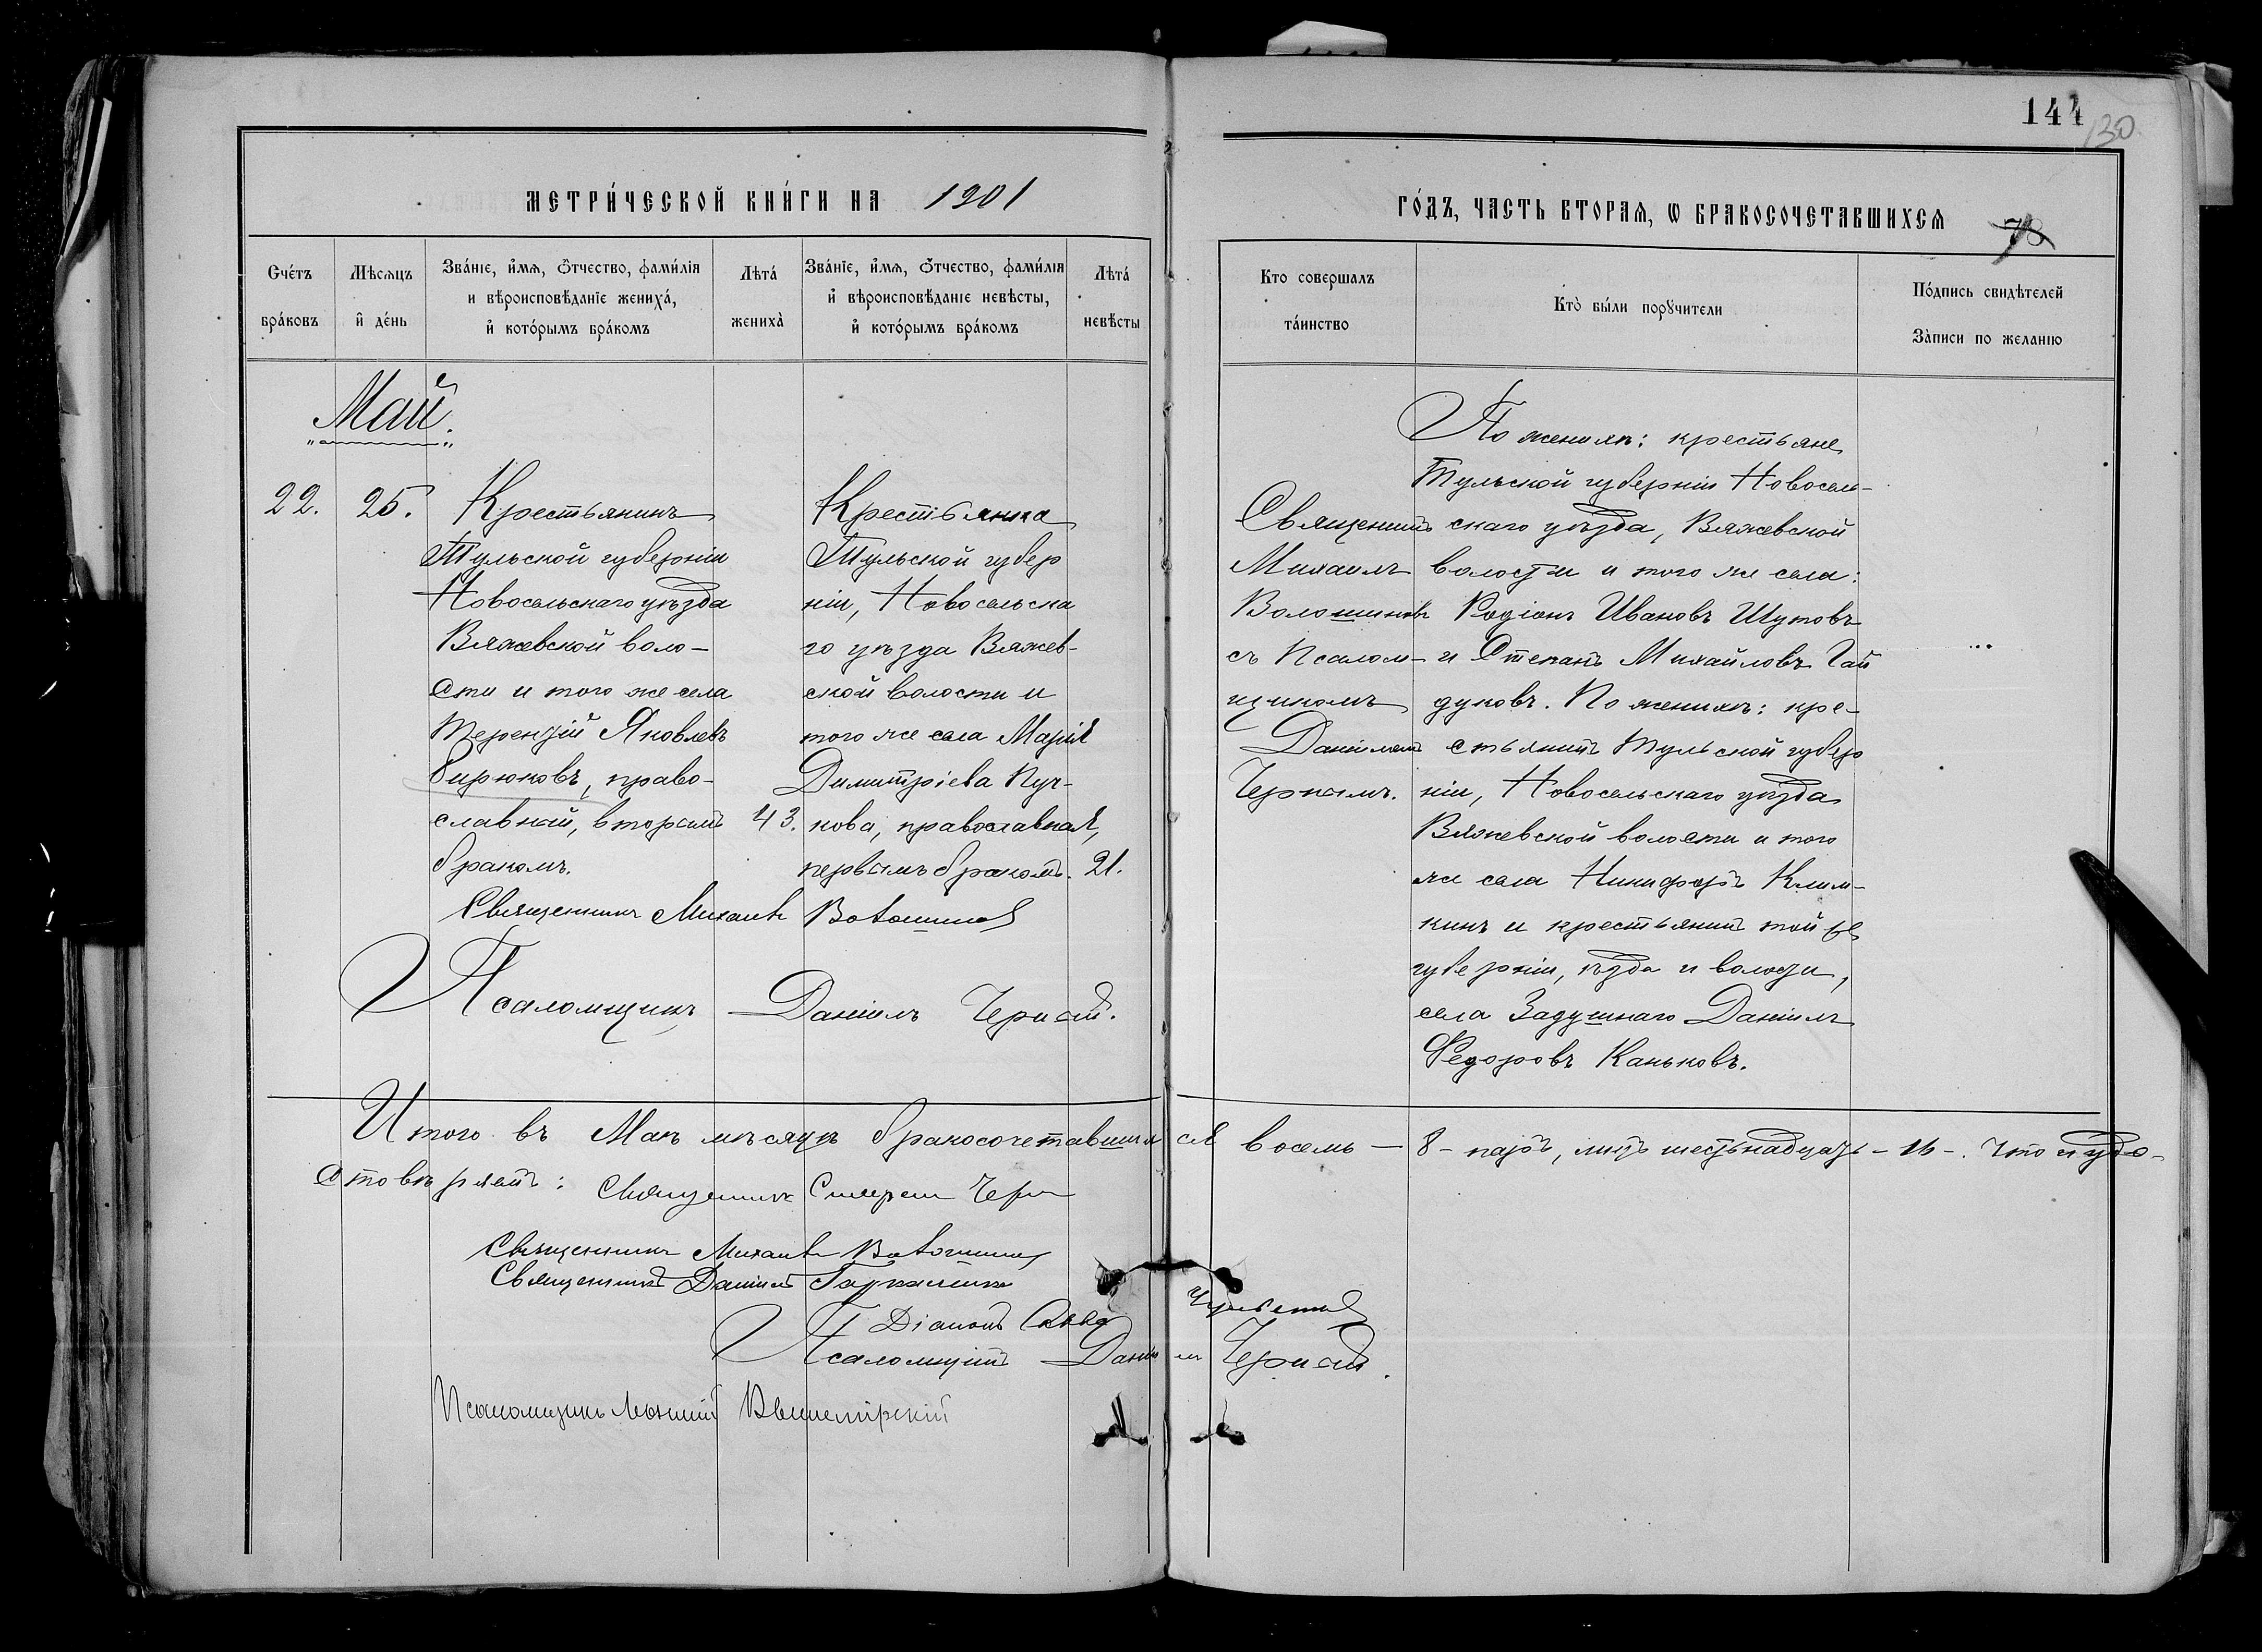 144
130
МЕТРИ́ЧЕСКОЙ КНИ́ГИ НА 1901
ГО́ДЪ, ЧАСТЬ ВТОРАѦ, Ѡ БРАКОСОЧЕТАВШИХСѦ
78
Счéтъ брáковъ
Мѣсѧцъ и дéнь
Звáніе, и́мѧ, о́тчество, фами́лія и вѣроисповѣ́даніе женихá, и кото́рымъ брáкомъ
Лѣтá женихà
Звáніе, и́мѧ, о́тчество, фами́лія и вѣроисповѣ́даніе невѣсты, и кото́рымъ брáкомъ
Лѣтá невѣ́сты
Кто совершалъ тáинство
Кто̀ бы́ли порꙋчители
По́дпись свидѣтелей Зàписи по желанію
Май.
22.
25.
Крестьянинъ
Тульской губерніи
Новосельскаго уѣзда
Вяжевской воло-
сти и того же села
Терентій Яковлевъ
Бирюковъ, право-
славный, вторымъ
бракомъ.
43.
Крестьянка
Тульской губер
ніи, Новосельска
го уѣзда Вяжев-
ской волости и
того же села Марія
Димитріева Пуч-
кова, православная,
первымъ бракомъ.
21.
Священникъ Михаилъ Волошиновъ
Псаломщикъ Даніилъ Чернай.
Священникъ
Михаилъ
Волошиновъ
съ Псалом-
щикомъ
Даніиломъ
Чернаимъ.
По женихѣ: крестьяне
Тульской губерніи Новосель-
скаго уѣзда, Вяжевской
волости и того же села:
Родіонъ Ивановъ Шутовъ
и Стефанъ Михайловъ Гай
дуковъ. По женихѣ: кре-
стьянинъ Тульской губер
ніи, Новосельскаго уѣзда
Вяжевской волости и того
же села Никифоръ Клим-
кинъ и крестьянинъ той же
губерніи, уѣзда и волости,
села Задушнаго Даніилъ
Федоровъ Каньковъ.
Итого въ Маѣ мѣсяцѣ бракосочетавшихся восемь — 8 - паръ, лицъ шестьнадцать - 16 -. Что и удо-
стовѣряютъ: Священникъ
Священникъ Михаилъ Волошиновъ
Священникъ Даніилъ
Діаконъ Савва
Псаломщикъ Даніилъ Чернай.
Псаломщикъ